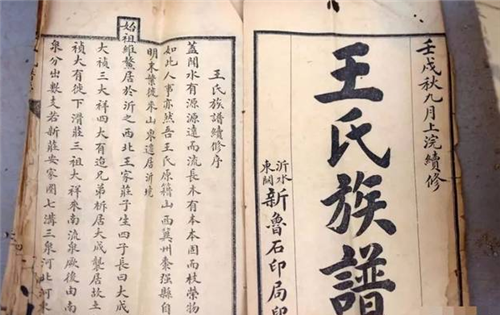 壬戌秋九月上浣續修
王氏族譜
沂水
東關
新魯石印局印
王氏族譜續修序
蓋聞水有源源遠而流長木有本本固而枝榮物
如此人事亦然吾王氏原籍山西冀州棗强縣自
明末葉後來山東遷居沂境
始祖維鰲居於沂之西北王家莊子生四子長曰大成
大禎三大祥四大有迨兄弟析居大成襲居故土
禎大有徙下滑莊三祖大祥來南流泉厥後由南
泉分出數支若新莊安家圈七溝三泉河北河東